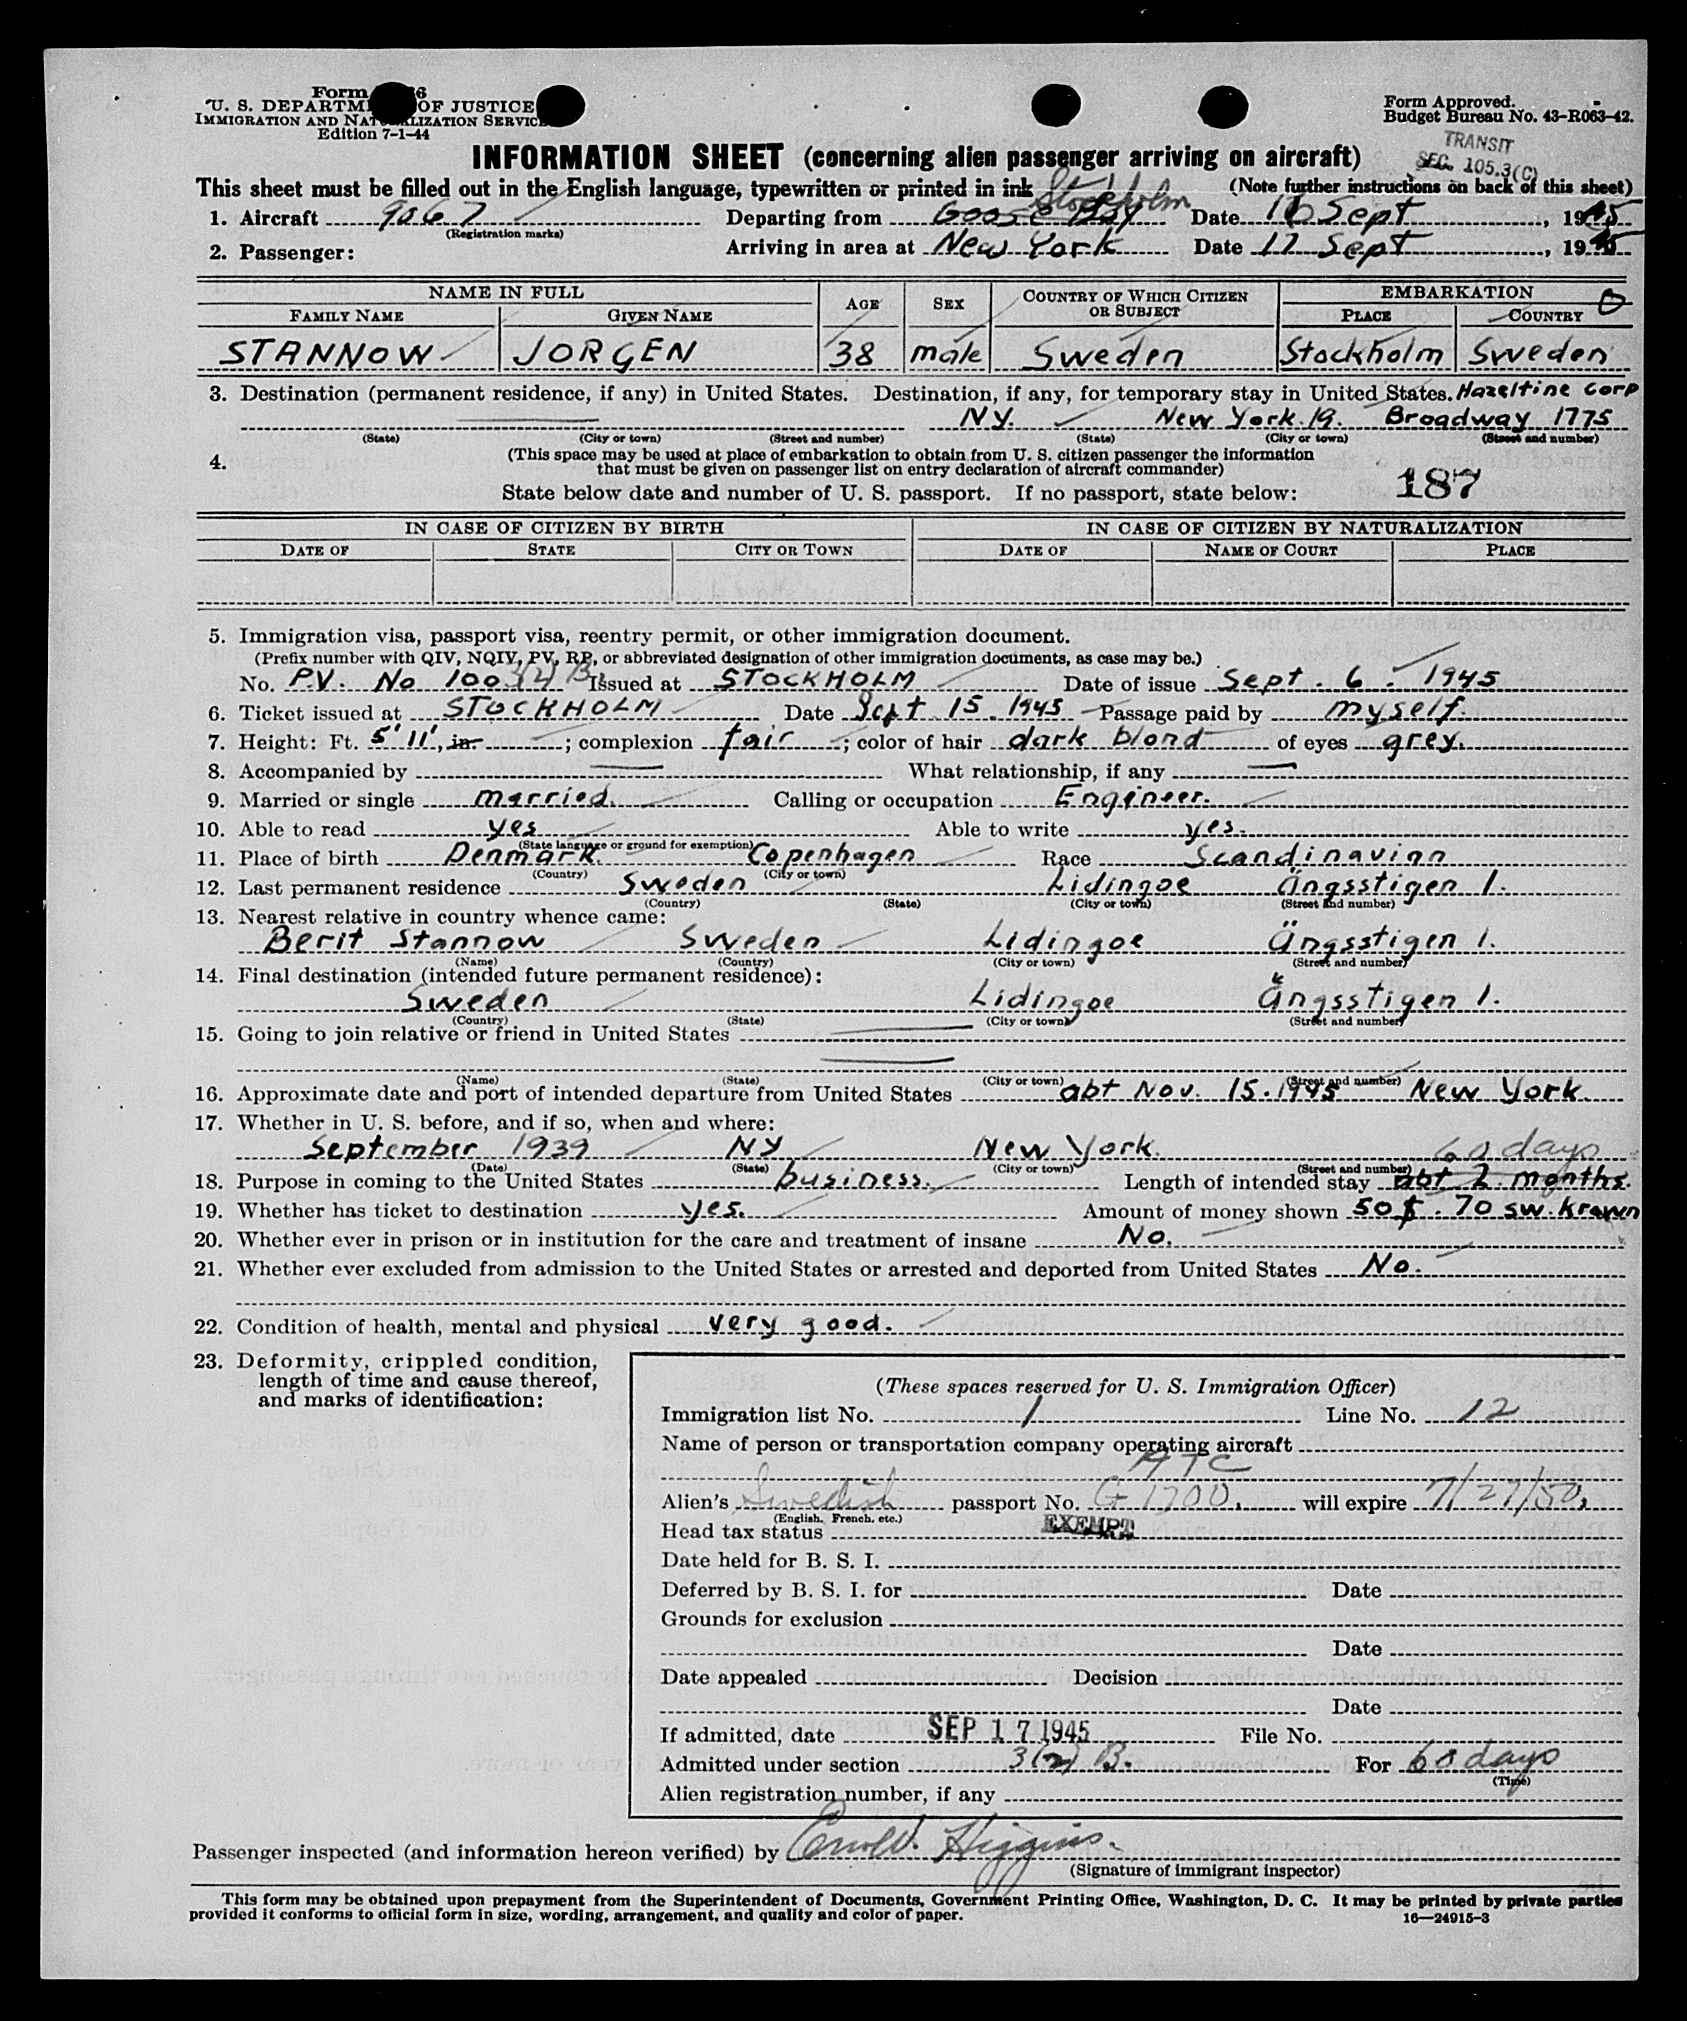 Form 6
U. S. DEPARTME OF JUSTICE
IMMIGRATION AND NAT LIZATION SERVICE
Edition 7-1-44
Form Approved.
Budget Bureau No. 43-R063-42.
TRANSIT
SEC. 105.3(C)
INFORMATION SHEET (concerning alien passenger arriving on aircraft)
This sheet must be filled out in the English language, typewritten or printed in ink (Note further instructions on back of this sheet)
Stockholm
1. Aircraft 9067 Departing from Goose Bay Date 16 Sept, 1945
(Registration marks)
2. Passenger: Arriving in area at New York Date 17 Sept, 1945
NAME IN FULL AGE SEX COUNTRY OF WHICH CITIZEN OR SUBJECT EMBARKATION
FAMILY NAME GIVEN NAME PLACE COUNTRY
STANNOW JORGEN 38 male Sweden Stockholm Sweden
3. Destination (permanent residence, if any) in United States. Destination, if any, for temporary stay in United States. Hazeltine Corp
NY. New York. 19. Broadway 1775
(State) (City or town) (Street and number) (State) (City or town) (Street and number)
4. (This space may be used at place of embarkation to obtain from U. S. citizen passenger the information
that must be given on passenger list on entry declaration of aircraft commander)
State below date and number of U. S. passport. If no passport, state below: 187
IN CASE OF CITIZEN BY BIRTH IN CASE OF CITIZEN BY NATURALIZATION
DATE OF STATE CITY OR TOWN DATE OF NAME OF COURT PLACE
5. Immigration visa, passport visa, reentry permit, or other immigration document.
(Prefix number with QIV, NQIV, PV, RP, or abbreviated designation of other immigration documents, as case may be.)
No. P.V. No 100 3(2) B. Issued at STOCKHOLM Date of issue Sept. 6. 1945
6. Ticket issued at STOCKHOLM Date Sept 15. 1945 Passage paid by myself.
7. Height: Ft. 5' 11", in. ; complexion fair ; color of hair dark blond of eyes grey.
8. Accompanied by What relationship, if any
9. Married or single married. Calling or occupation Engineer.
10. Able to read yes Able to write yes.
(State language or ground for exemption)
11. Place of birth Denmark. Copenhagen Race Scandinavian
(Country) (City or town)
12. Last permanent residence Sweden Lidingoe Ängsstigen 1.
(Country) (State) (City or town) (Street and number)
13. Nearest relative in country whence came:
Berit Stannow Sweden Lidingoe Ängsstigen 1.
(Name) (Country) (City or town) (Street and number)
14. Final destination (intended future permanent residence):
Sweden Lidingoe Ängsstigen 1.
(Country) (State) (City or town) (Street and number)
15. Going to join relative or friend in United States
(Name) (State) (City or town) (Street and number)
16. Approximate date and port of intended departure from United States abt Nov. 15. 1945 New York.
17. Whether in U. S. before, and if so, when and where:
September 1939 NY New York. 60 days
(Date) (State) (City or town) (Street and number)
18. Purpose in coming to the United States business. Length of intended stay abt 2 months.
19. Whether has ticket to destination yes. Amount of money shown 50 $. 70 sw. krown
20. Whether ever in prison or in institution for the care and treatment of insane No.
21. Whether ever excluded from admission to the United States or arrested and deported from United States No.
22. Condition of health, mental and physical very good.
23. Deformity, crippled condition,
length of time and cause thereof,
and marks of identification:
(These spaces reserved for U. S. Immigration Officer)
Immigration list No. 1 Line No. 12
Name of person or transportation company operating aircraft
ATC
Alien's Swedish passport No. G 1700. will expire 7/27/50.
(English, French, etc.)
Head tax status EXEMPT
Date held for B. S. I.
Deferred by B. S. I. for Date
Grounds for exclusion
Date
Date appealed Decision
Date
If admitted, date SEP 17 1945 File No.
Admitted under section 3(2) B. For 60 days
(Time)
Alien registration number, if any
Passenger inspected (and information hereon verified) by Higgins.
(Signature of immigrant inspector)
This form may be obtained upon prepayment from the Superintendent of Documents, Government Printing Office, Washington, D. C. It may be printed by private parties
provided it conforms to official form in size, wording, arrangement, and quality and color of paper.
16—24915-3